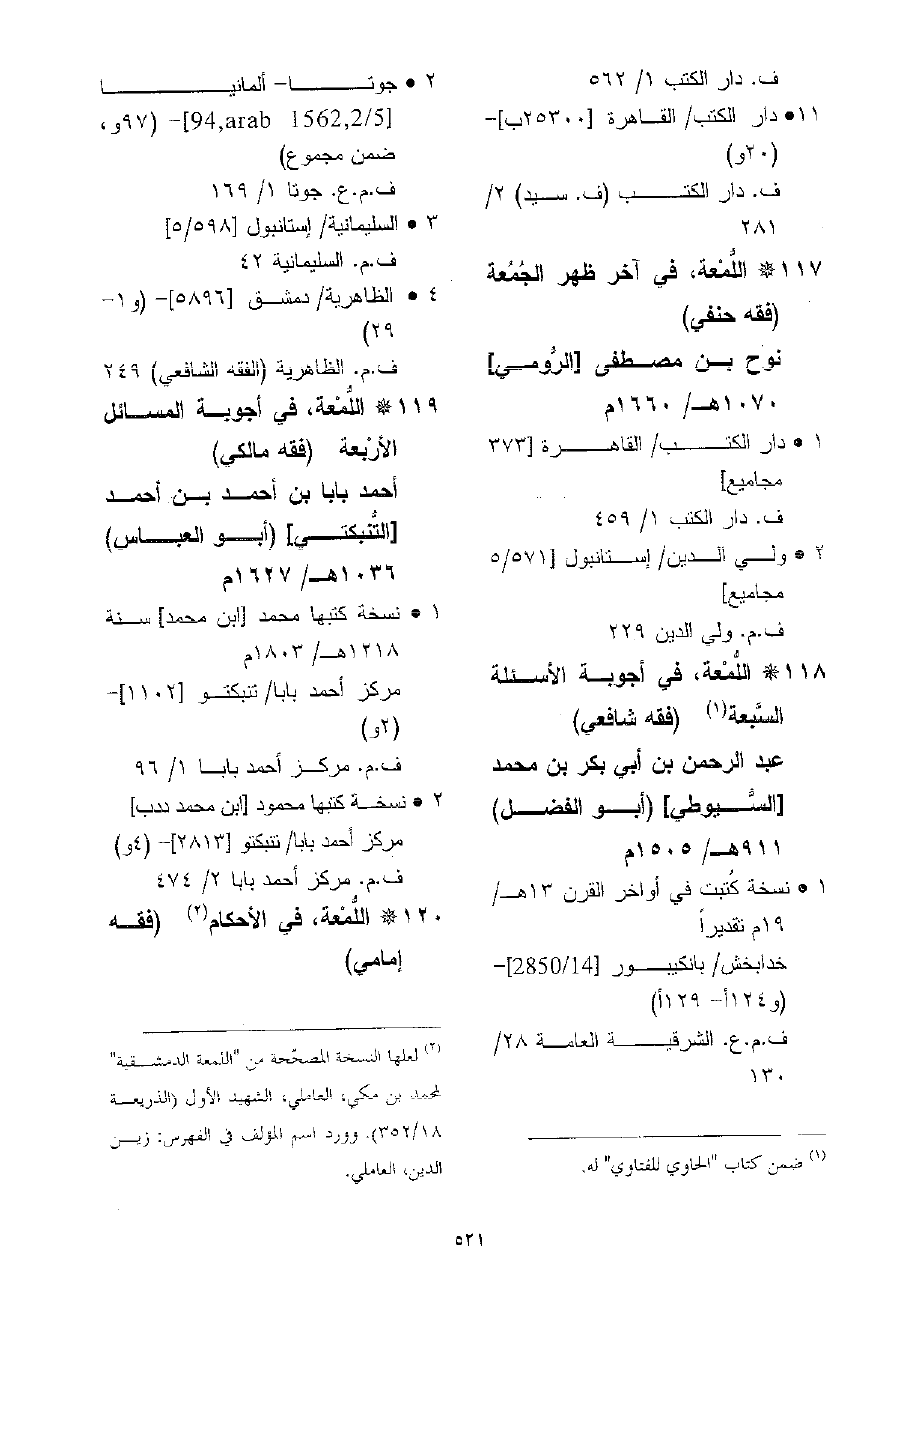 ف. دار الكتب ١/ ٥٦٢
١١• دار الكتب/ القاهرة [٢٥٣٠٠ب]–
(٢٠و)
ف. دار الكتب (ف. سيد) ٢/
٢٨١
١١٧ * اللُّمْعة، في آخر ظهر الجُمُعة
(فقه حنفي)
نوح بن مصطفى [الرُّومي]
١٠٧٠هـ/ ١٦٦٠م
١ • دار الكتب/ القاهرة [٣٧٣
مجاميع]
ف. دار الكتب ١/ ٤٥٩
٢ • ولي الدين/ إستانبول [٥/٥٧١
مجاميع]
ف.م. ولي الدين ٢٢٩
١١٨ * اللُّمْعة، في أجوبة الأسئلة
السَّبعة(١) (فقه شافعي)
عبد الرحمن بن أبي بكر بن محمد
[السُّيوطي] (أبو الفضل)
٩١١هـ/ ١٥٠٥م
١ • نسخة كُتبت في أواخر القرن ١٣هـ/
١٩م تقديراً
خدابخش/ بانكيبور [2850/14]–
(و١٢٤أ– ١٢٩أ)
ف.م.ع. الشرقية العامة ٢٨/
١٣٠
(١) ضمن كتاب "الحاوي للفتاوي" له.
٢ • جوتا– ألمانيا
[94,arab 1562,2/5]– (٩٧و،
ضمن مجموع)
ف.م.ع. جوتا ١/ ١٦٩
٣ • السليمانية/ إستانبول [٥/٥٩٨]
ف.م. السليمانية ٤٢
٤ • الظاهرية/ دمشق [٥٨٩٦]– (و١–
٢٩)
ف.م. الظاهرية (الفقه الشافعي) ٢٤٩
١١٩ * اللُّمْعة، في أجوبة المسائل
الأرْبعة (فقه مالكي)
أحمد بابا بن أحمد بن أحمد
[التُّنبكتي] (أبو العباس)
١٠٣٦هـ/ ١٦٢٧م
١ • نسخة كتبها محمد [ابن محمد] سنة
١٢١٨هـ/ ١٨٠٣م
مركز أحمد بابا/ تنبكتو [١١٠٢]–
(٢و)
ف.م. مركز أحمد بابا ١/ ٩٦
٢ • نسخة كتبها محمود [ابن محمد ددب]
مركز أحمد بابا/ تنبكتو [٢٨١٣]– (٤و)
ف.م. مركز أحمد بابا ٢/ ٤٧٤
١٢٠ * اللُّمْعة، في الأحكام(٢) (فقه
إمامي)
(٢) لعلها النسخة المصحّحة من "اللمعة الدمشقية"
لمحمد بن مكي، العاملي، الشهيد الأول (الذريعة
٣٥٢/١٨). وورد اسم المؤلف في الفهرس: زين
الدين، العاملي.
٥٢١